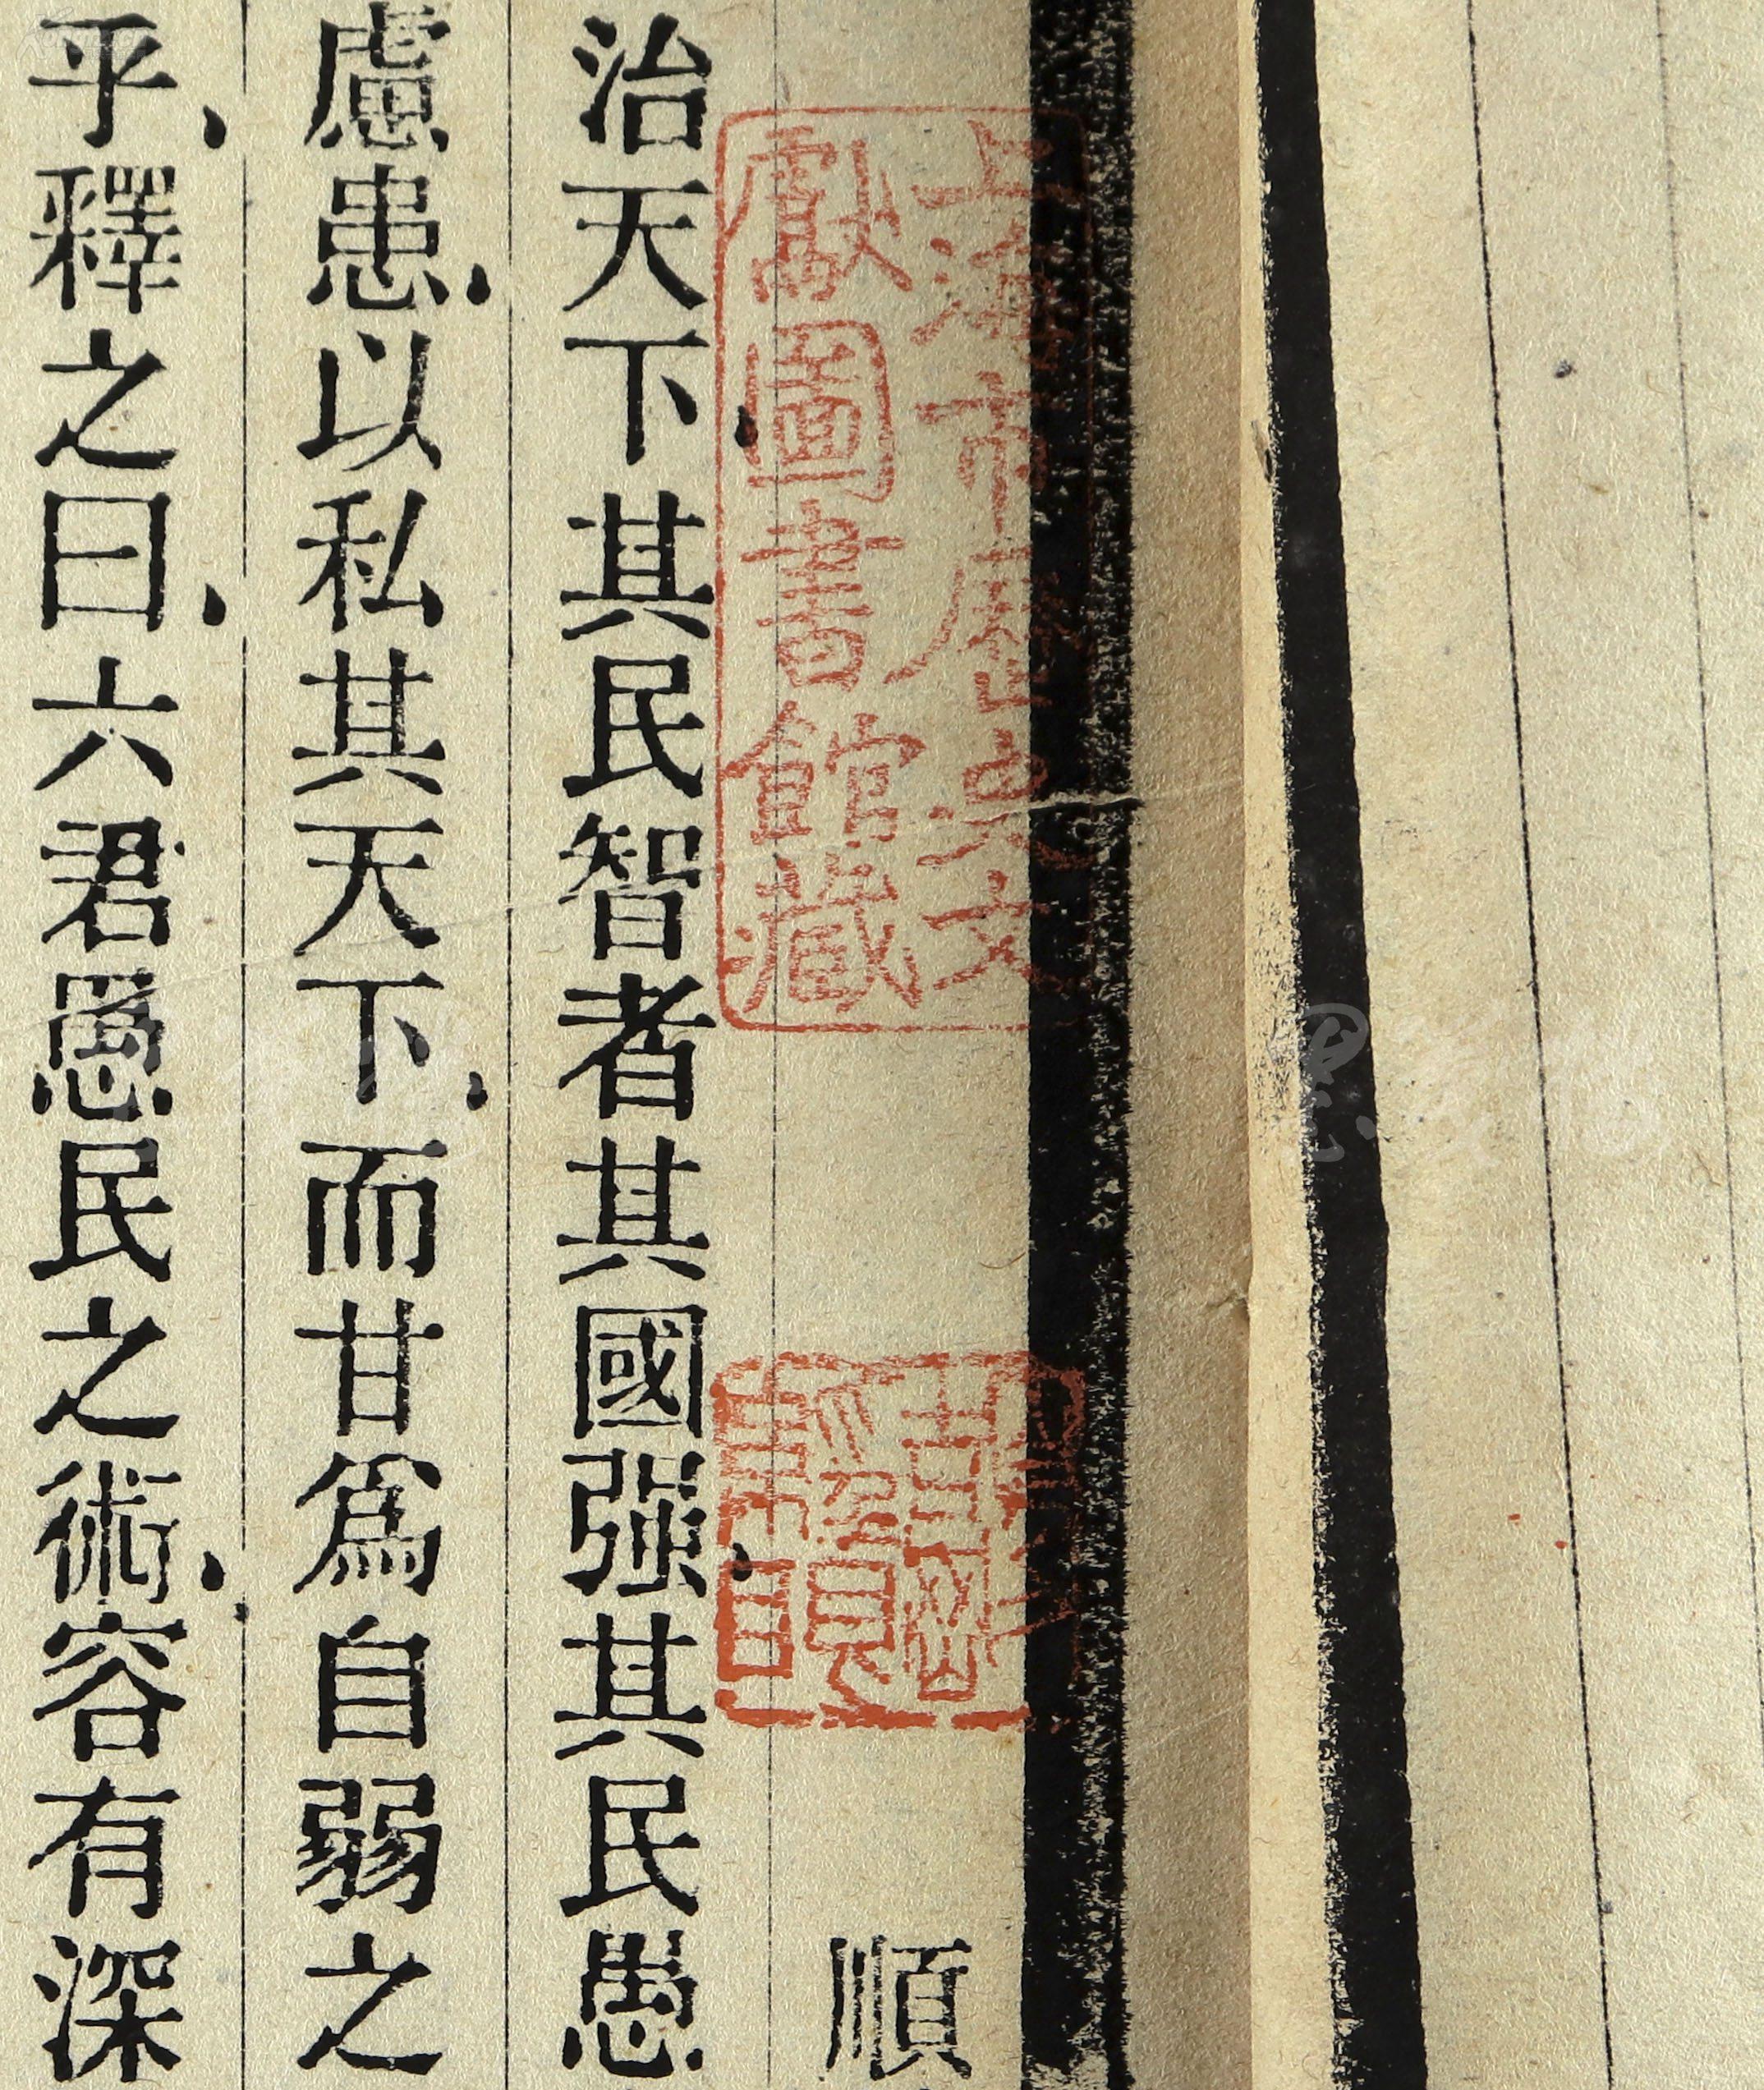 上海市歷史文
獻圖書館藏
順
治天下其民智者其國强其民愚
慮患以私其天下而甘爲自弱之
乎釋之曰六君愚民之術容有深